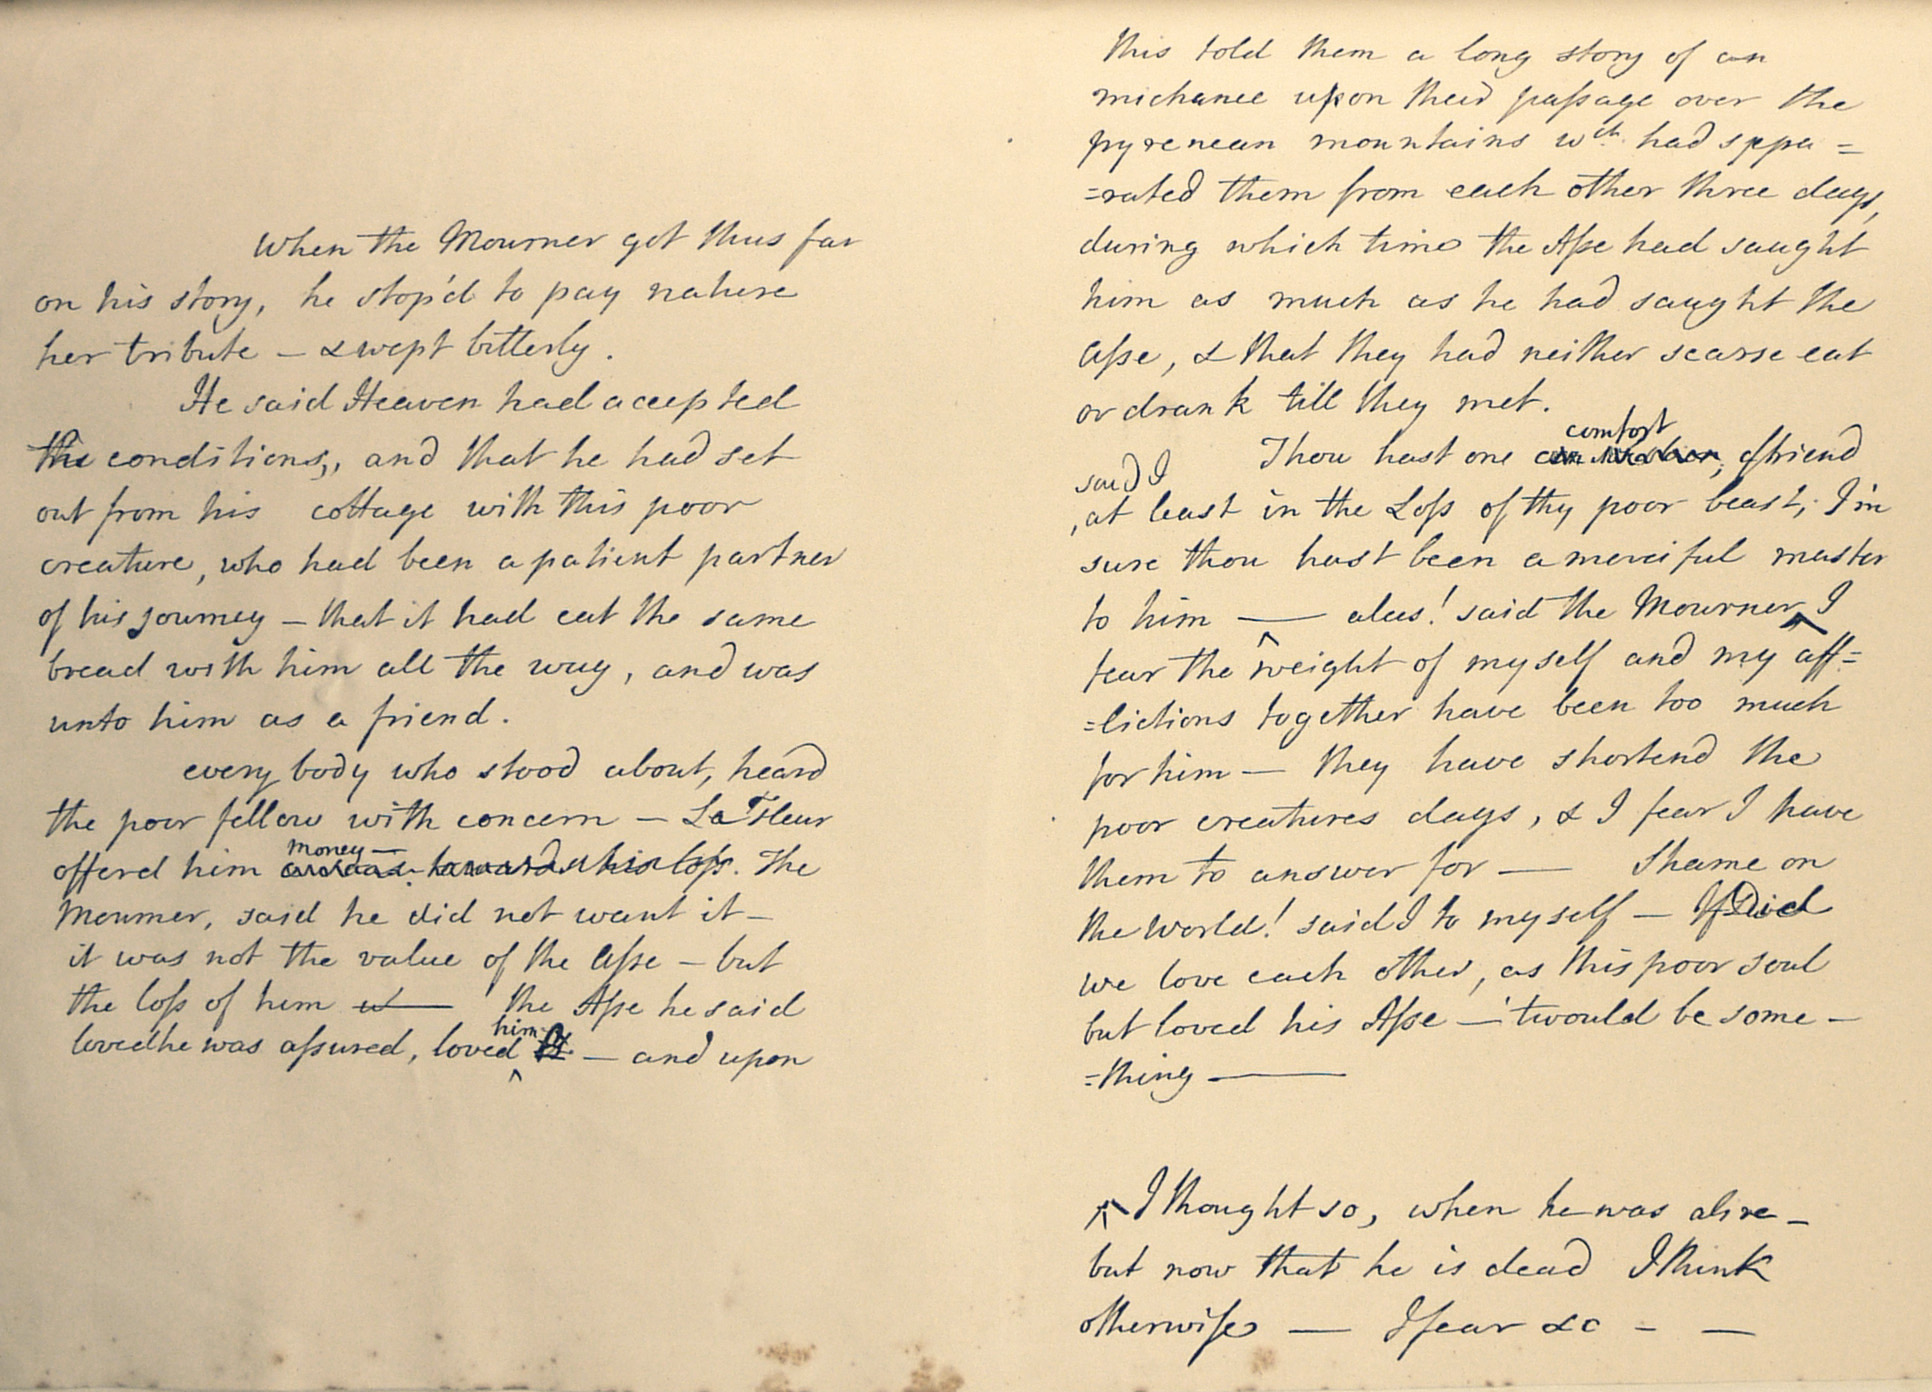 When the Mourner got thus far
on his story, he stop'd to pay nature
her tribute — & wept bitterly.
He said Heaven had accepted
the conditions, and that he had set
out from his cottage with this poor
creature, who had been a patient partner
of his journey — that it had eat the same
bread with him all the way, and was
unto him as a friend.
every body who stood about, heard
the poor fellow with concern — La Fleur
money —
offerd him towards his loſs. The
Mourner, said he did not want it —
it was not the value of the Aſse — but
the loſs of him w— the Aſse he said
him
loved he was aſsured, loved — and upon
this told them a long story of an
michance upon their paſsage over the
pyrenean mountains wch had sepa=
=rated them from each other three days,
during which time the Aſse had saught
him as much as he had saught the
Aſse, & that they had neither scarse eat
or drank till they met.
comfort
Thou hast one friend
said I
, at least in the Loſs of thy poor beast; I'm
sure thou hast been a merciful master
to him — alas! said the Mourner ^ I
fear the weight of myself and my aff=
=lictions together have been too much
for him — they have shortend the
poor creatures days, & I fear I have
them to answer for — Shame on
the World! said I to myself — If Did
we love each other, as this poor soul
but loved his Aſse — 'twould be some —
=thing —
^ I thought so, when he was alive —
but now that he is dead I think
otherwiſe — I fear &c — —